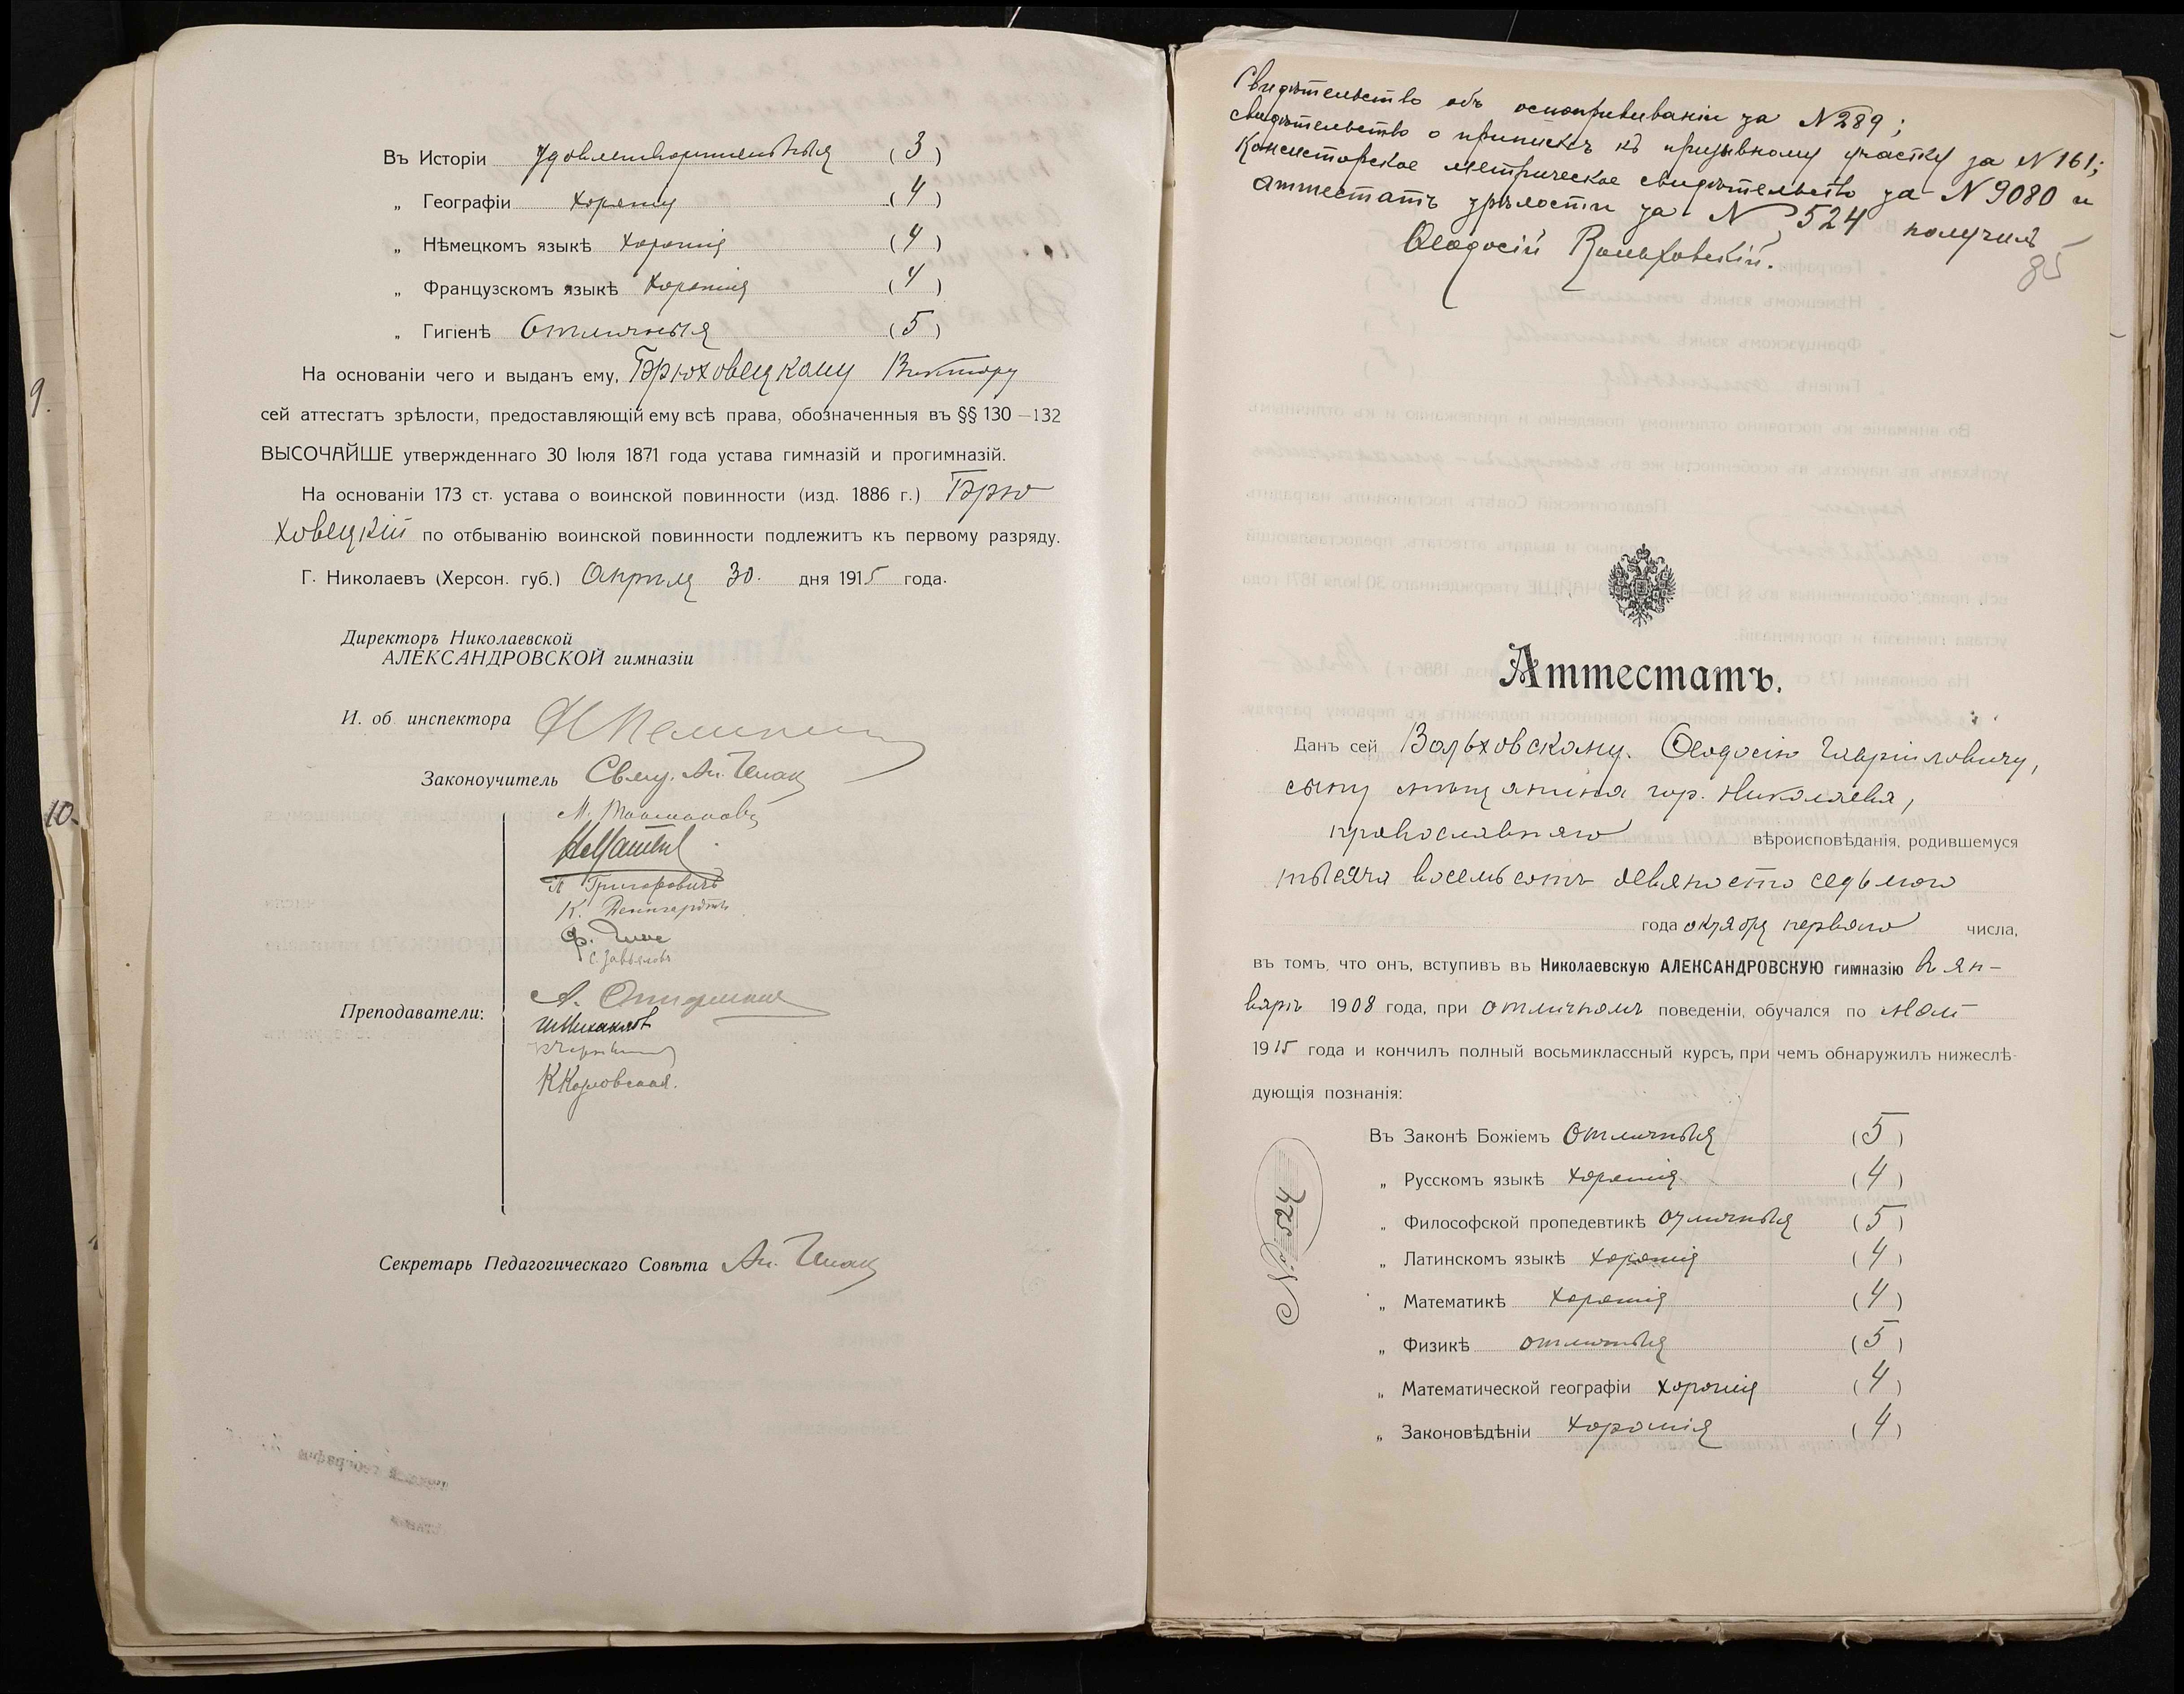 Въ Исторіи удовлетворительныя (3)
„ Географіи хорошія (4)
„ Нѣмецкомъ языкѣ хорошія (4)
„ Французскомъ языкѣ хорошія (4)
„ Гигіенѣ отличныя (5)
На основаніи чего и выданъ ему, Брюховецкому Виктору
сей аттестатъ зрѣлости, предоставляющій ему всѣ права, обозначенныя въ §§ 130—132
ВЫСОЧАЙШЕ утвержденнаго 30 Іюля 1871 года устава гимназій и прогимназій.
На основаніи 173 ст. устава о воинской повинности (изд. 1886 г.) Брю
ховецкій по отбыванію воинской повинности подлежитъ къ первому разряду.
Г. Николаевъ (Херсон. губ.) Апрѣля 30. дня 1915 года.
Директоръ Николаевской
АЛЕКСАНДРОВСКОЙ гимназіи
И. об. инспектора
Законоучитель Свящ. Ан.
Григоровичъ
К.
Ф.
С. Завьяловъ
А.
Преподаватели:
К Козловская.
Секретарь Педагогическаго Совѣта Ан.
9.
10.
Свидѣтельство объ оспопрививаніи за N 289;
свидѣтельство о припискѣ къ призывному участку за N 161;
Консисторское метрическое свидѣтельство за N 9080 и
аттестатъ зрѣлости за N 524 получилъ
Ѳеодосій Вольховскій.
85
Аттестатъ.
Данъ сей Вольховскому Ѳеодосію Гавріиловичу,
сыну мѣщанина гор. Николаева,
православнаго вѣроисповѣданія, родившемуся
тысяча восемьсотъ девяносто седьмого
года октября перваго числа,
въ томъ, что онъ, вступивъ въ Николаевскую АЛЕКСАНДРОВСКУЮ гимназію въ ян-
варѣ 1908 года, при отличномъ поведеніи, обучался по май
1915 года и кончилъ полный восьмиклассный курсъ, при чемъ обнаружилъ нижеслѣ-
дующія познанія:
Въ Законѣ Божіемъ отличныя (5)
„ Русскомъ языкѣ хорошія (4)
„ Философской пропедевтикѣ отличныя (5)
„ Латинскомъ языкѣ хорошія (4)
„ Математикѣ хорошія (4)
„ Физикѣ отличныя (5)
„ Математической географіи хорошія (4)
„ Законовѣдѣніи хорошія (4)
№ 524